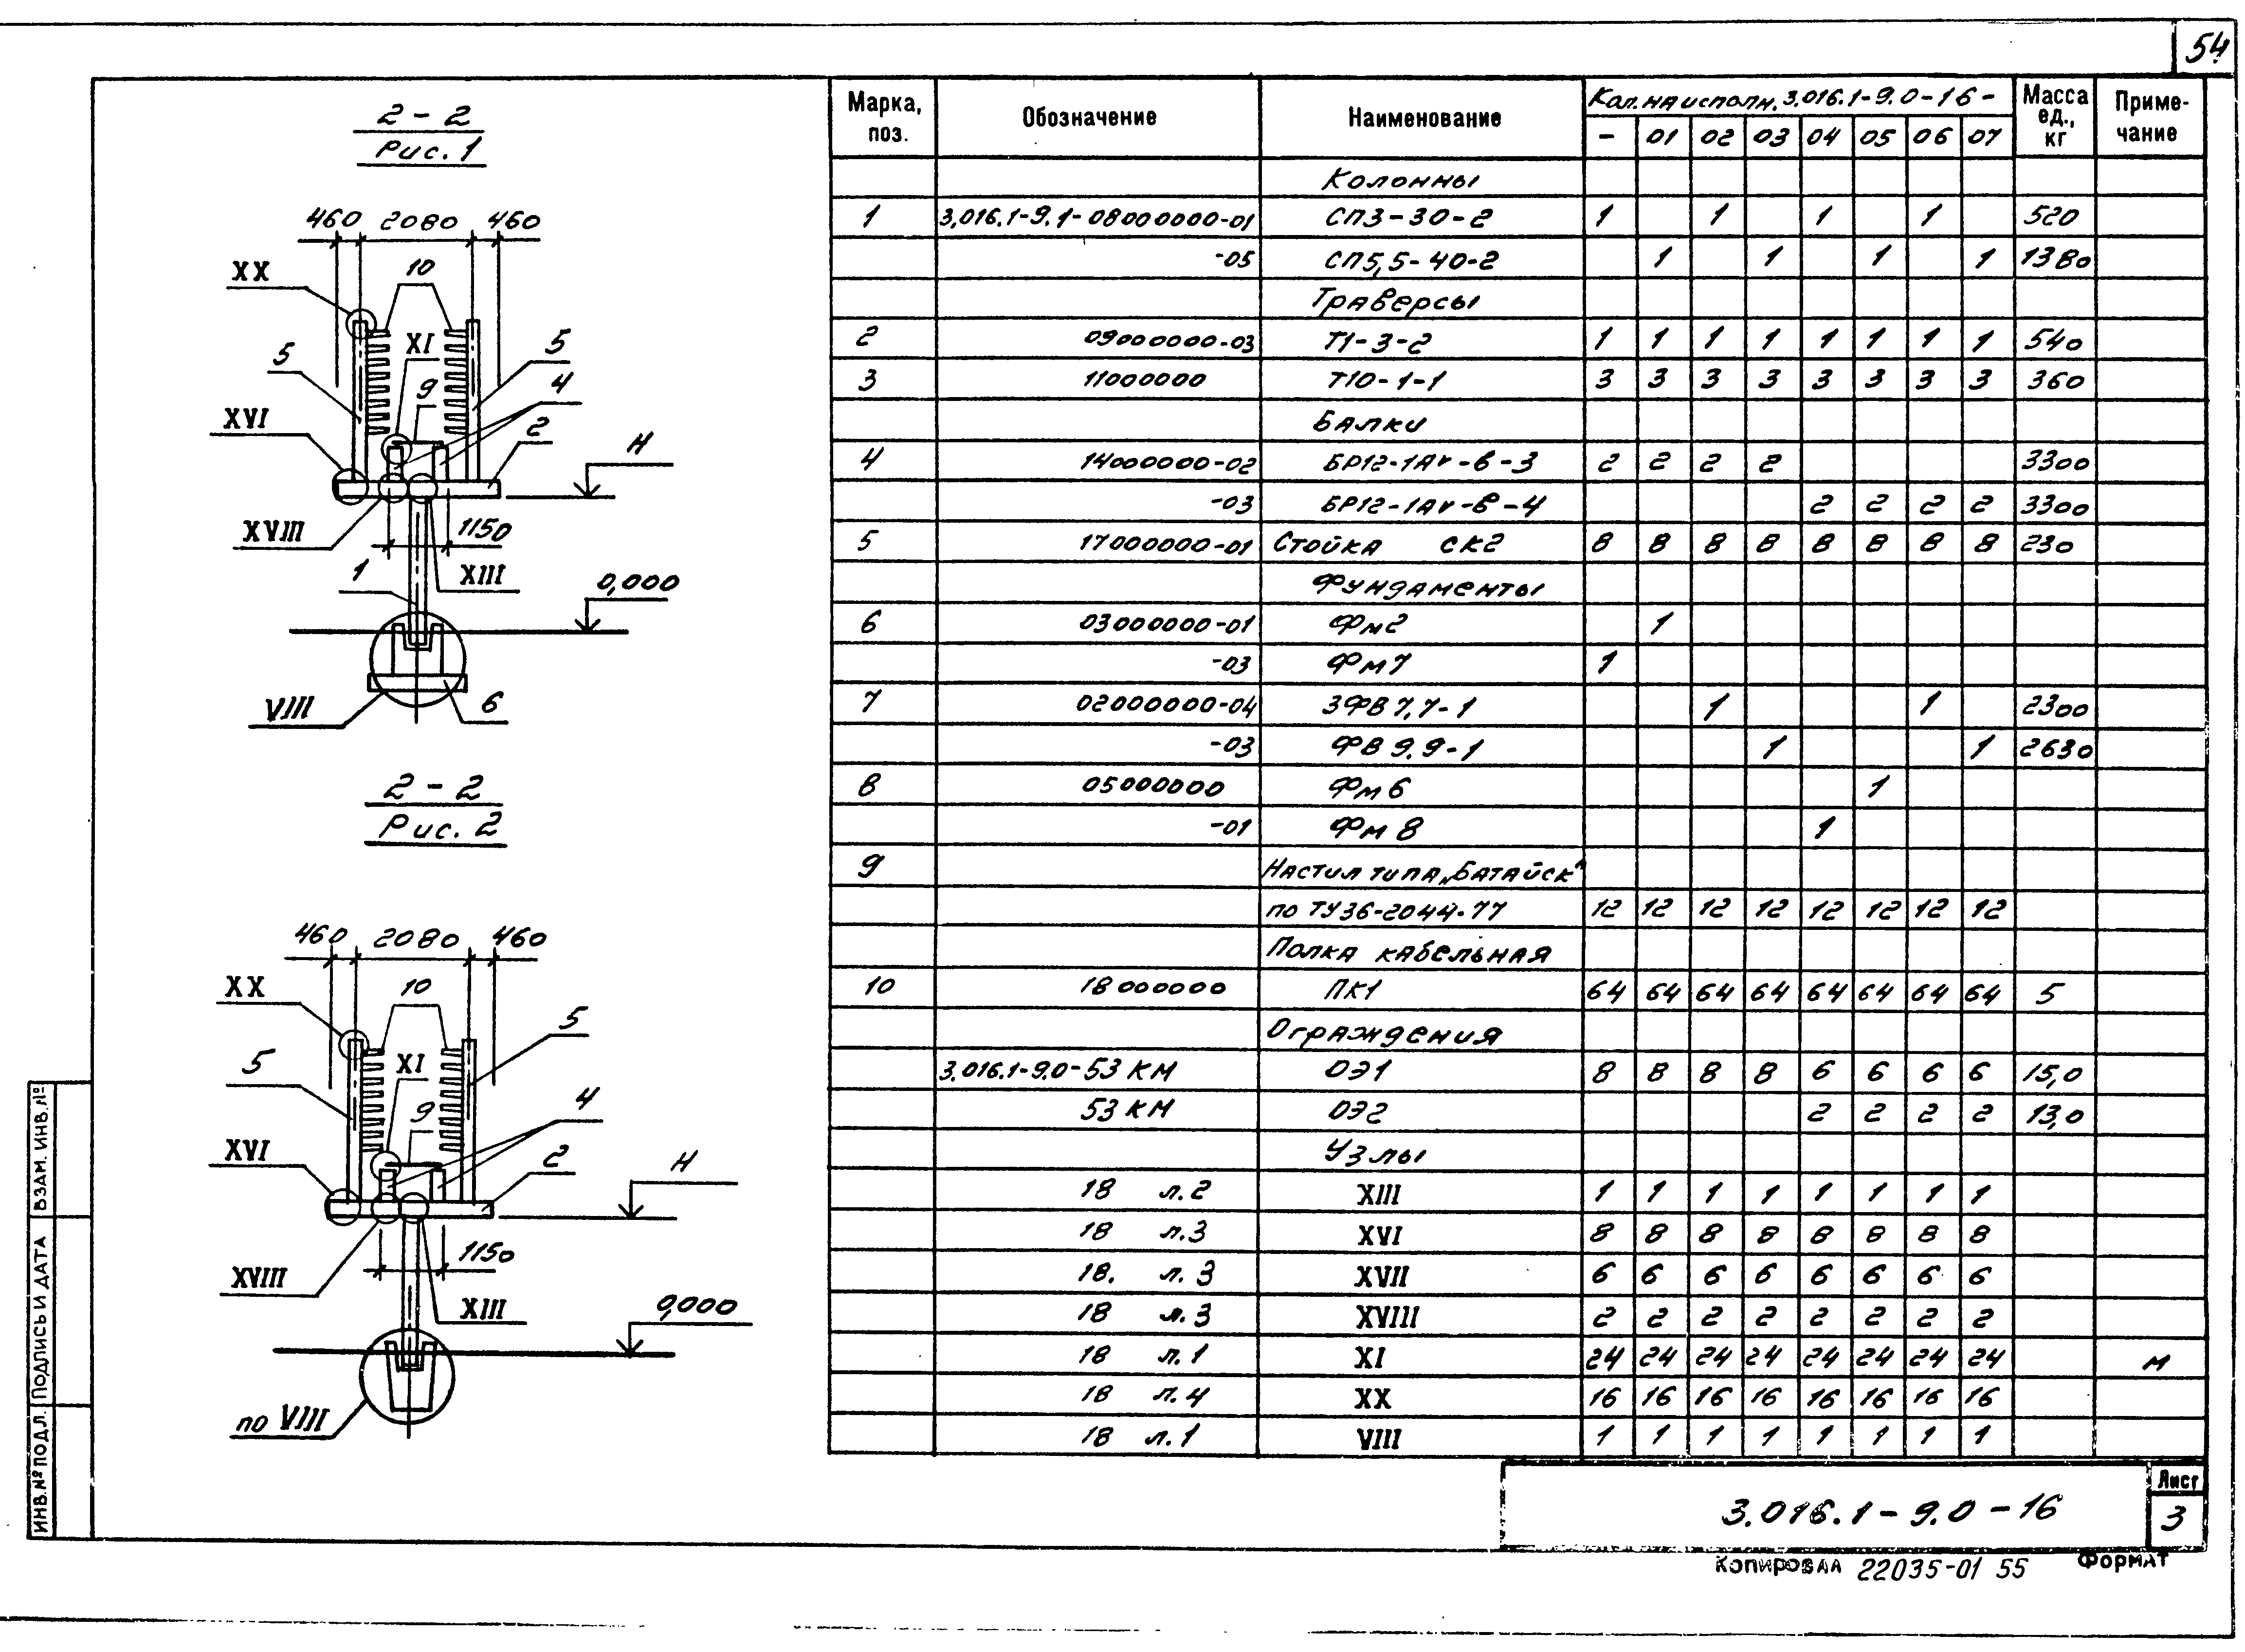 54
2-2
Рис. 1
460 2080 460
XX
10
5
XI
9
5
4
XVI
2
Н
XVIII
1150
1
XIII
0,000
VIII
6
2-2
Рис. 2
460 2080 460
XX
10
5
5
XI
9
4
XVI
2
Н
1150
XVIII
XIII
0,000
по VIII
Марка, поз. Обозначение Наименование Кол. на исполн. 3.016.1-9.0-16- Масса ед., кг Приме-чание
- 01 02 03 04 05 06 07
Колонны
1 3.016.1-9.1-08000000-01 СП3-30-2 1 1 1 1 520
-05 СП5,5-40-2 1 1 1 1 1380
Траверсы
2 09000000-03 Т1-3-2 1 1 1 1 1 1 1 1 540
3 11000000 Т10-1-1 3 3 3 3 3 3 3 3 360
Балки
4 14000000-02 БР12-1АV-в-3 2 2 2 2 3300
-03 БР12-1АV-в-4 2 2 2 2 3300
5 17000000-01 Стойка СК2 8 8 8 8 8 8 8 8 230
Фундаменты
6 03000000-01 Фм2 1
-03 Фм7 1
7 02000000-04 3ФВ7.7-1 1 1 2300
-03 ФВ9.9-1 1 1 2630
8 05000000 Фм6 1
-01 Фм8 1
9 Настил типа „Батайск"
по ТУ36-2044-77 12 12 12 12 12 12 12 12
Полка кабельная
10 18000000 ПК1 64 64 64 64 64 64 64 64 5
Ограждения
3.016.1-9.0-53 КМ ОЭ1 8 8 8 8 6 6 6 6 15,0
53 КМ ОЭ2 2 2 2 2 13,0
Узлы
18 л.2 XIII 1 1 1 1 1 1 1 1
18 л.3 XVI 8 8 8 8 8 8 8 8
18. л.3 XVII 6 6 6 6 6 6 6 6
18 л.3 XVIII 2 2 2 2 2 2 2 2
18 л.1 XI 24 24 24 24 24 24 24 24 м
18 л.4 XX 16 16 16 16 16 16 16 16
18 л.1 VIII 1 1 1 1 1 1 1 1
3.016.1-9.0-16
Лист
3
Копировал 22035-01 55 Формат
ИНВ.№ ПОДЛ. ПОДПИСЬ И ДАТА ВЗАМ. ИНВ.№